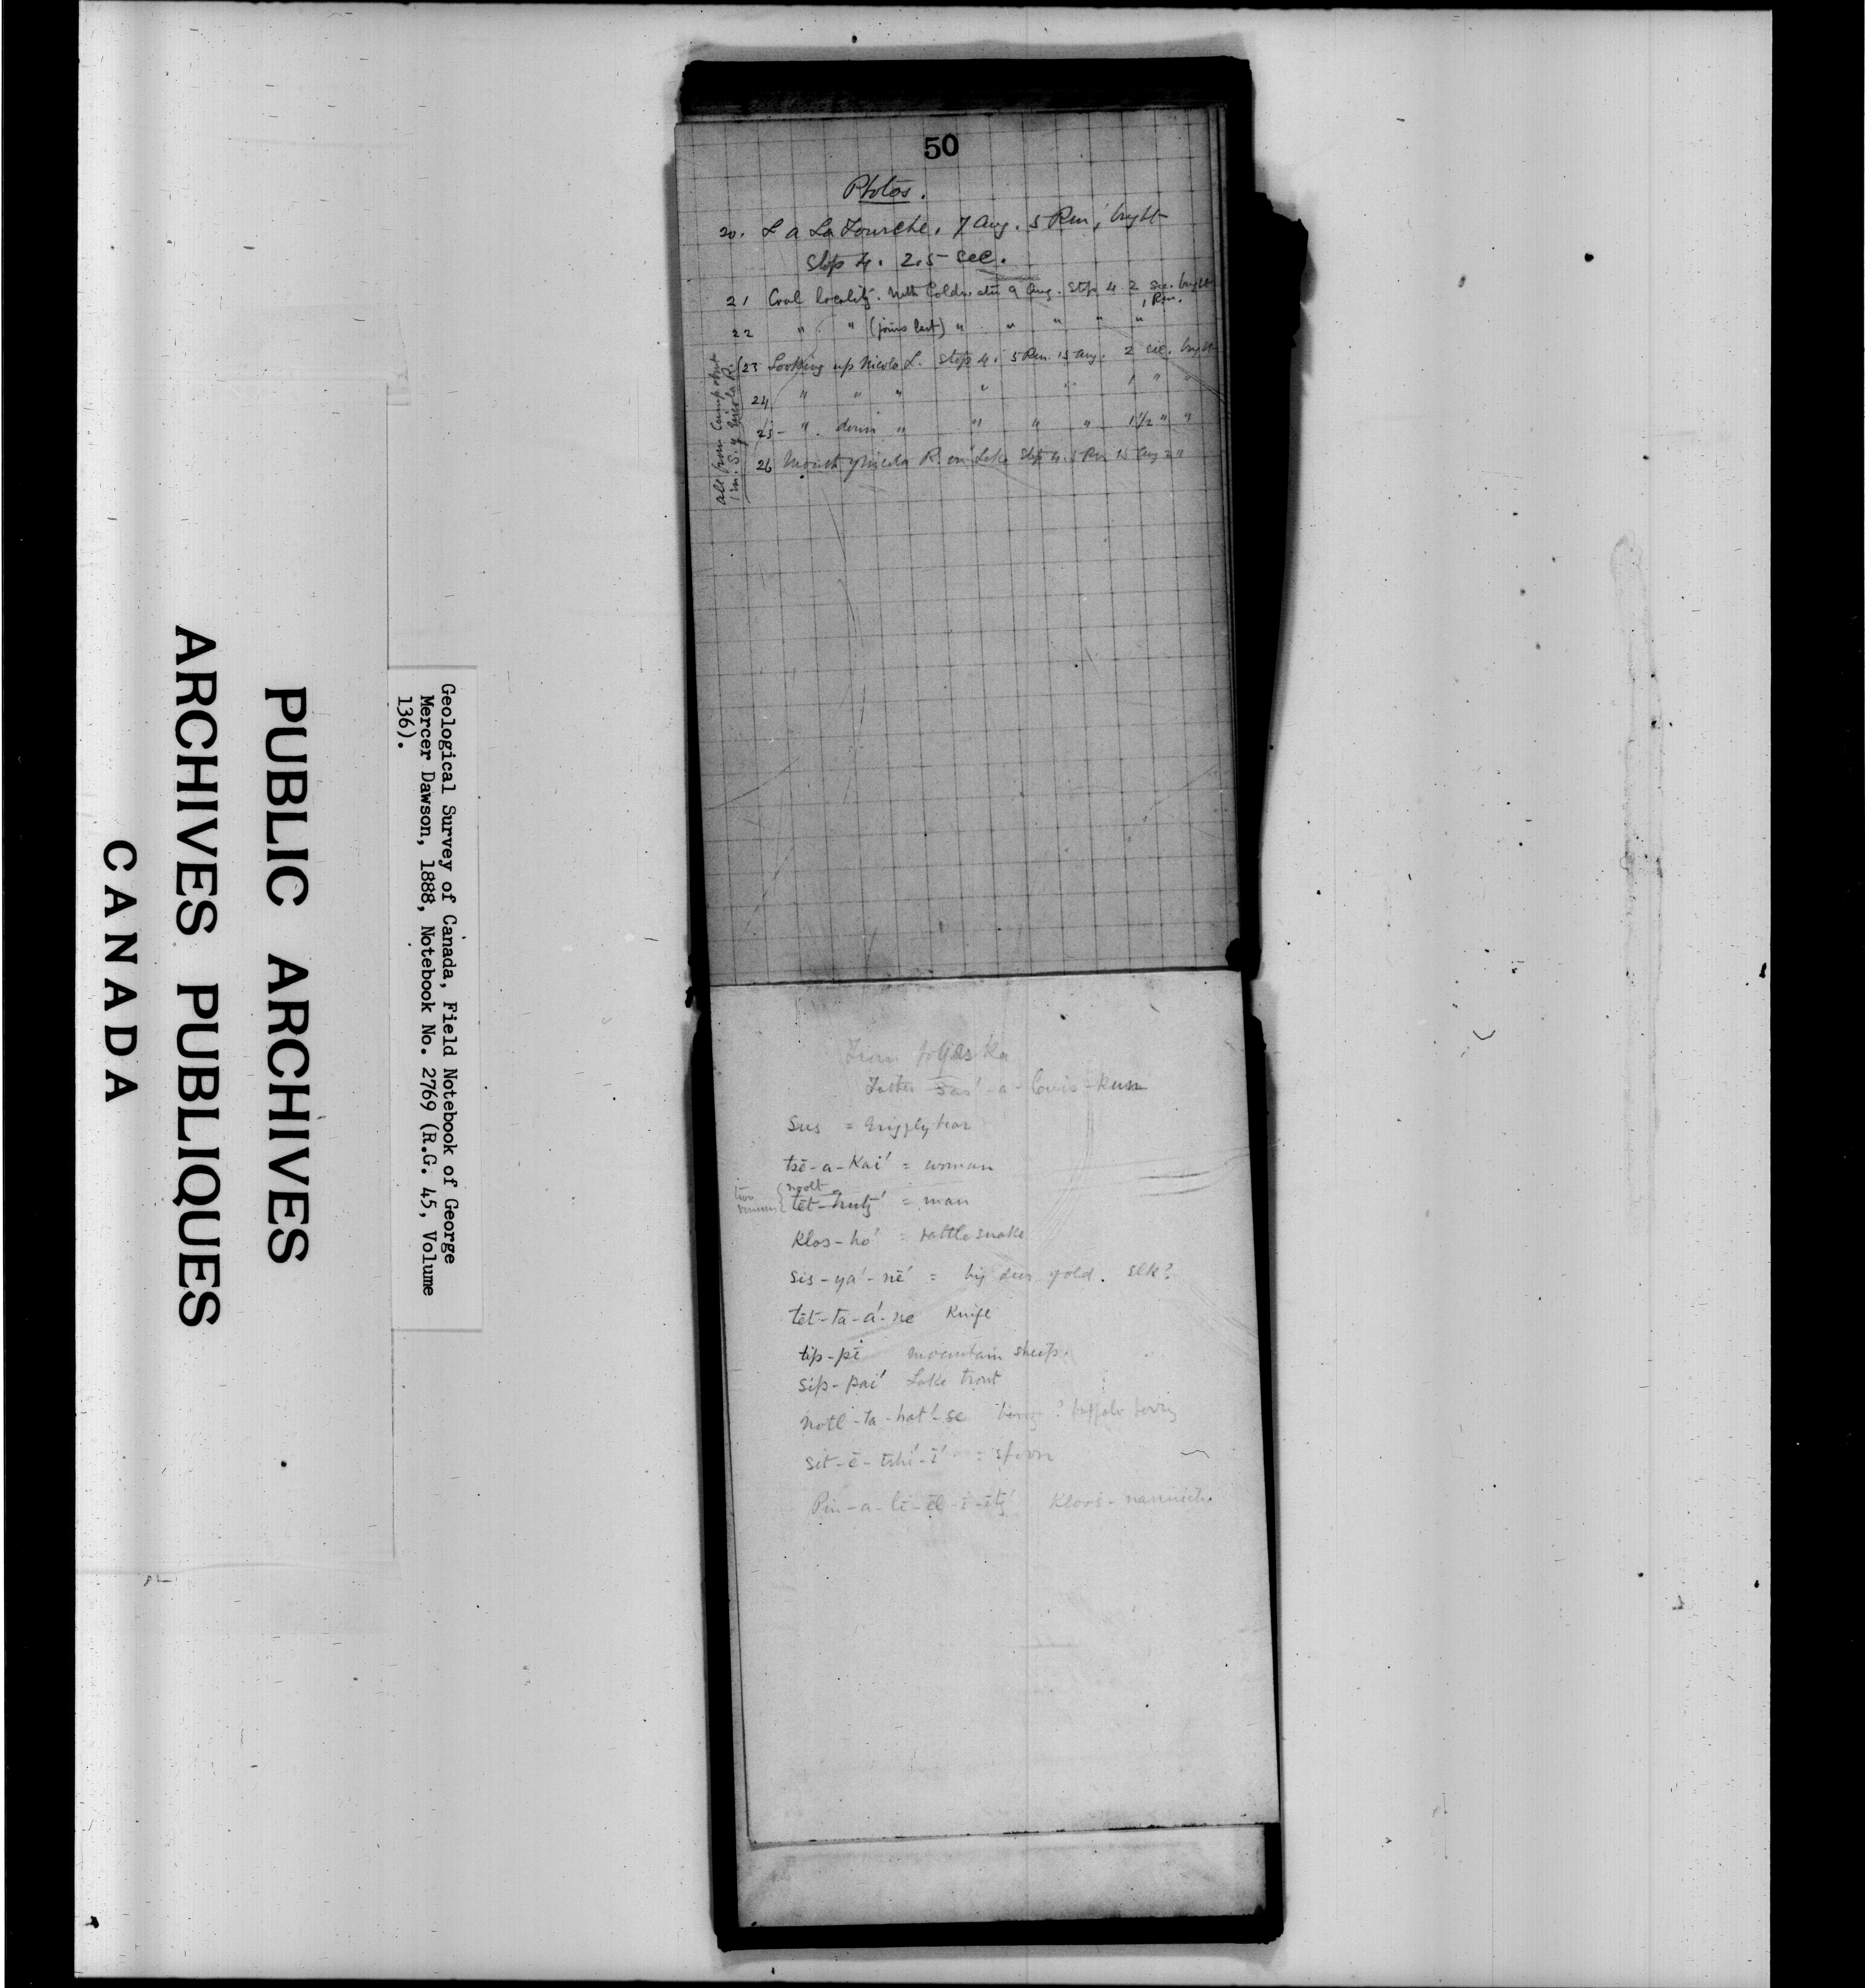 50
Photos.
20. L a La Fourche. 7 Aug. 5 P.m. bright
Stop 4. 2.5 sec.
21 Coal locality. Coldwater 9 Aug. Stop 4 2 sec. bright
1 P.m.
22 " " (joins last) " " " " "
23 Looking up Nicola L. Stop 4. 5 P.m. 15 Aug. 2 sec. bright
24 " " " " " 1 " "
25 " down " " " " 1 1/2 " "
26 Mouth of Nicola R. on Lake Stop 4. 5 P.m. 15 Aug 2 "
all from Camp
1 m. S. of Nicola R.
From
Father
Sus = Grizzly bear
tsē-a-Kai' = woman
two
{noolt
tēt- = man
Klos-ho' = rattlesnake
sis-ya'-nē' = big deer of old. elk?
tēt-ta-a'-ne Knife
tip-pē mountain sheep.
sip-pai' Lake trout
notl-ta-hat'-se ? buffalo berry
sit-ē-tshi'-ī' = spoon
Pin-a-lī-ēl-ī- Kloos-nannich.
Geological Survey of Canada, Field Notebook of George
Mercer Dawson, 1888, Notebook No. 2769 (R.G. 45, Volume
136).
PUBLIC ARCHIVES
ARCHIVES PUBLIQUES
CANADA